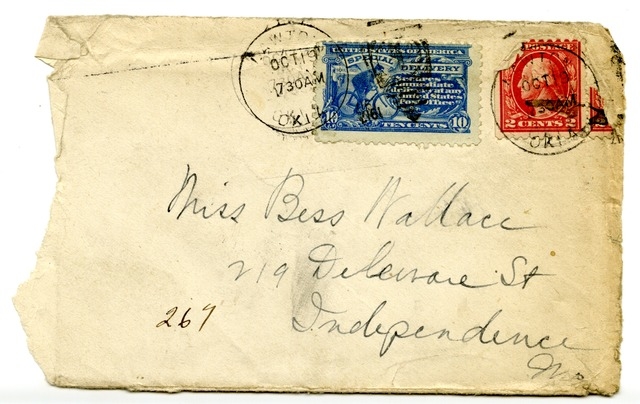 LAWTON
OCT 19
730 AM
OKLA
UNITED STATES OF AMERICA
SPECIAL DELIVERY
Secures
immediate
delivery at any
United States
Post Office
10 TEN CENTS 10
OCT 19
730 AM
OKLA
2 CENTS 2
Miss Bess Wallace
219 Deleware St
Independence
Mo
267